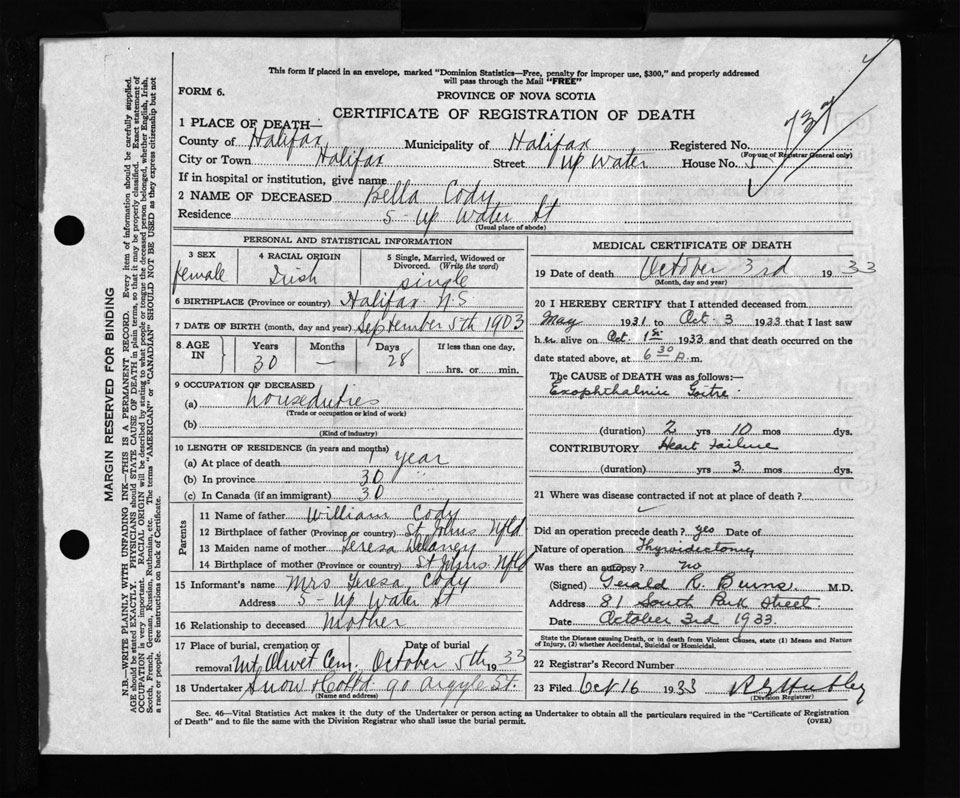 This form if placed in an envelope, marked "Dominion Statistics—Free, penalty for improper use, $300," and properly addressed
will pass through the Mail "FREE"
FORM 6.
PROVINCE OF NOVA SCOTIA
CERTIFICATE OF REGISTRATION OF DEATH
1 PLACE OF DEATH—
County of Halifax Municipality of Halifax Registered No.
(For use of Registrar General only)
City or Town Halifax Street Up Water House No. 5
If in hospital or institution, give name
2 NAME OF DECEASED Bella Cody
Residence 5 - Up Water St
(Usual place of abode)
PERSONAL AND STATISTICAL INFORMATION
3 SEX female
4 RACIAL ORIGIN Irish
5 Single, Married, Widowed or Divorced. (Write the word) single
6 BIRTHPLACE (Province or country) Halifax N.S
7 DATE OF BIRTH (month, day and year) September 5th 1903
8 AGE IN Years 30 Months — Days 28 If less than one day. hrs. or min.
9 OCCUPATION OF DECEASED
(a) houseduties
(Trade or occupation or kind of work)
(b)
(Kind of industry)
10 LENGTH OF RESIDENCE (in years and months)
(a) At place of death 1 year
(b) In province 30 "
(c) In Canada (if an immigrant) 30 "
Parents
11 Name of father William Cody
12 Birthplace of father (Province or country) St Johns Nfld
13 Maiden name of mother Teresa Delaney
14 Birthplace of mother (Province or country) St Johns Nfld
15 Informant's name Mrs Teresa Cody
Address 5 - Up Water St
16 Relationship to deceased Mother
17 Place of burial, cremation or removal Mt Olivet Cem. Date of burial October 5th 1933
18 Undertaker Snow & Co Ltd 90 Argyle St.
MEDICAL CERTIFICATE OF DEATH
19 Date of death October 3rd 1933
(Month, day and year)
20 I HEREBY CERTIFY that I attended deceased from
May 1931 to Oct. 3 1933 that I last saw
h er alive on Oct. 1st 1933 and that death occurred on the
date stated above, at 6 30 P.m.
The CAUSE of DEATH was as follows:—
Exophthalmic Goitre
(duration) 2 yrs 10 mos dys.
CONTRIBUTORY Heart Failure
(duration) yrs 3 mos dys.
21 Where was disease contracted if not at place of death?
Did an operation precede death? yes Date of
Nature of operation Thyroidectomy
Was there an autopsy? no
(Signed) Gerald R. Burns. M.D.
Address 81 South Park Street
Date October 3rd 1933.
State the Disease causing Death, or in death from Violent Causes, state (1) Means and Nature
of Injury, (2) whether Accidental, Suicidal or Homicidal.
22 Registrar's Record Number
23 Filed Oct 16 1933
(Division Registrar)
Sec. 46—Vital Statistics Act makes it the duty of the Undertaker or person acting as Undertaker to obtain all the particulars required in the "Certificate of Registration
of Death" and to file the same with the Division Registrar who shall issue the burial permit.
(OVER)
MARGIN RESERVED FOR BINDING
N.B.—WRITE PLAINLY WITH UNFADING INK—THIS IS A PERMANENT RECORD. Every item of information should be carefully supplied.
AGE should be stated EXACTLY. PHYSICIANS should STATE CAUSE OF DEATH in plain terms, so that it may be properly classified. Exact statement of
OCCUPATION is very important. RACIAL ORIGIN will be described by stating to what people or tongue the deceased person belonged, whether English, Irish,
Scotch, French, German, Russian, Ruthenian, etc. The terms "AMERICAN" or "CANADIAN" SHOULD NOT BE USED as they express citizenship but not
a race or people. See instructions on back of Certificate.